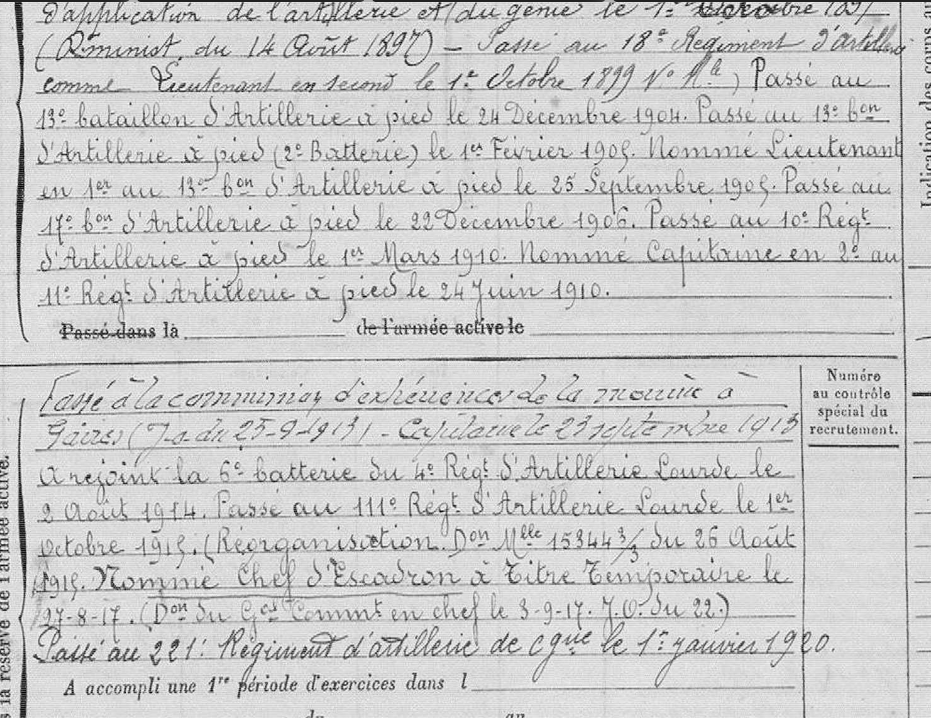 d'application de l'artillerie et du génie le 1er Octobre 1897
(Dminist. du 14 Août 1897) – Passé au 18e Régiment d'Artillerie
comme Lieutenant en second le 1er Octobre 1899 No Mle) Passé au
13e bataillon d'Artillerie à pied le 24 Décembre 1904. Passé au 13e bon
d'Artillerie à pied (2e Batterie) le 1er Février 1905. Nommé Lieutenant
en 1er au 13e bon d'Artillerie à pied le 25 Septembre 1905. Passé au
17e bon d'Artillerie à pied le 22 Décembre 1906. Passé au 10e Régt
d'Artillerie à pied le 1er Mars 1910. Nommé Capitaine en 2d au
11e Régt d'Artillerie à pied le 24 Juin 1910.
Passé dans là de l'armée active le
Passé à la commission d'expériences de la marine à
Gâvres (Jo du 25-9-1913) - Capitaine le 23 septembre 1913
A rejoint la 6e batterie du 4e Régt d'Artillerie Lourde le
2 Août 1914. Passé au 111e Régt d'Artillerie Lourde le 1er
Octobre 1915. (Réorganisation. Don Mlle 15344 3/3 du 26 Août
1915. Nommé Chef d'Escadron à Titre Temporaire le
27-8-17. (Don du Gal Commt en chef le 3-9-17. J.O. du 22.)
Passé au 221e Régiment d'artillerie de cgne le 1er janvier 1920.
A accompli une 1re période d'exercices dans l
du au
Numéro
au contrôle
spécial du
recrutement.
Indication des corps au
s la réserve de l'armée active.